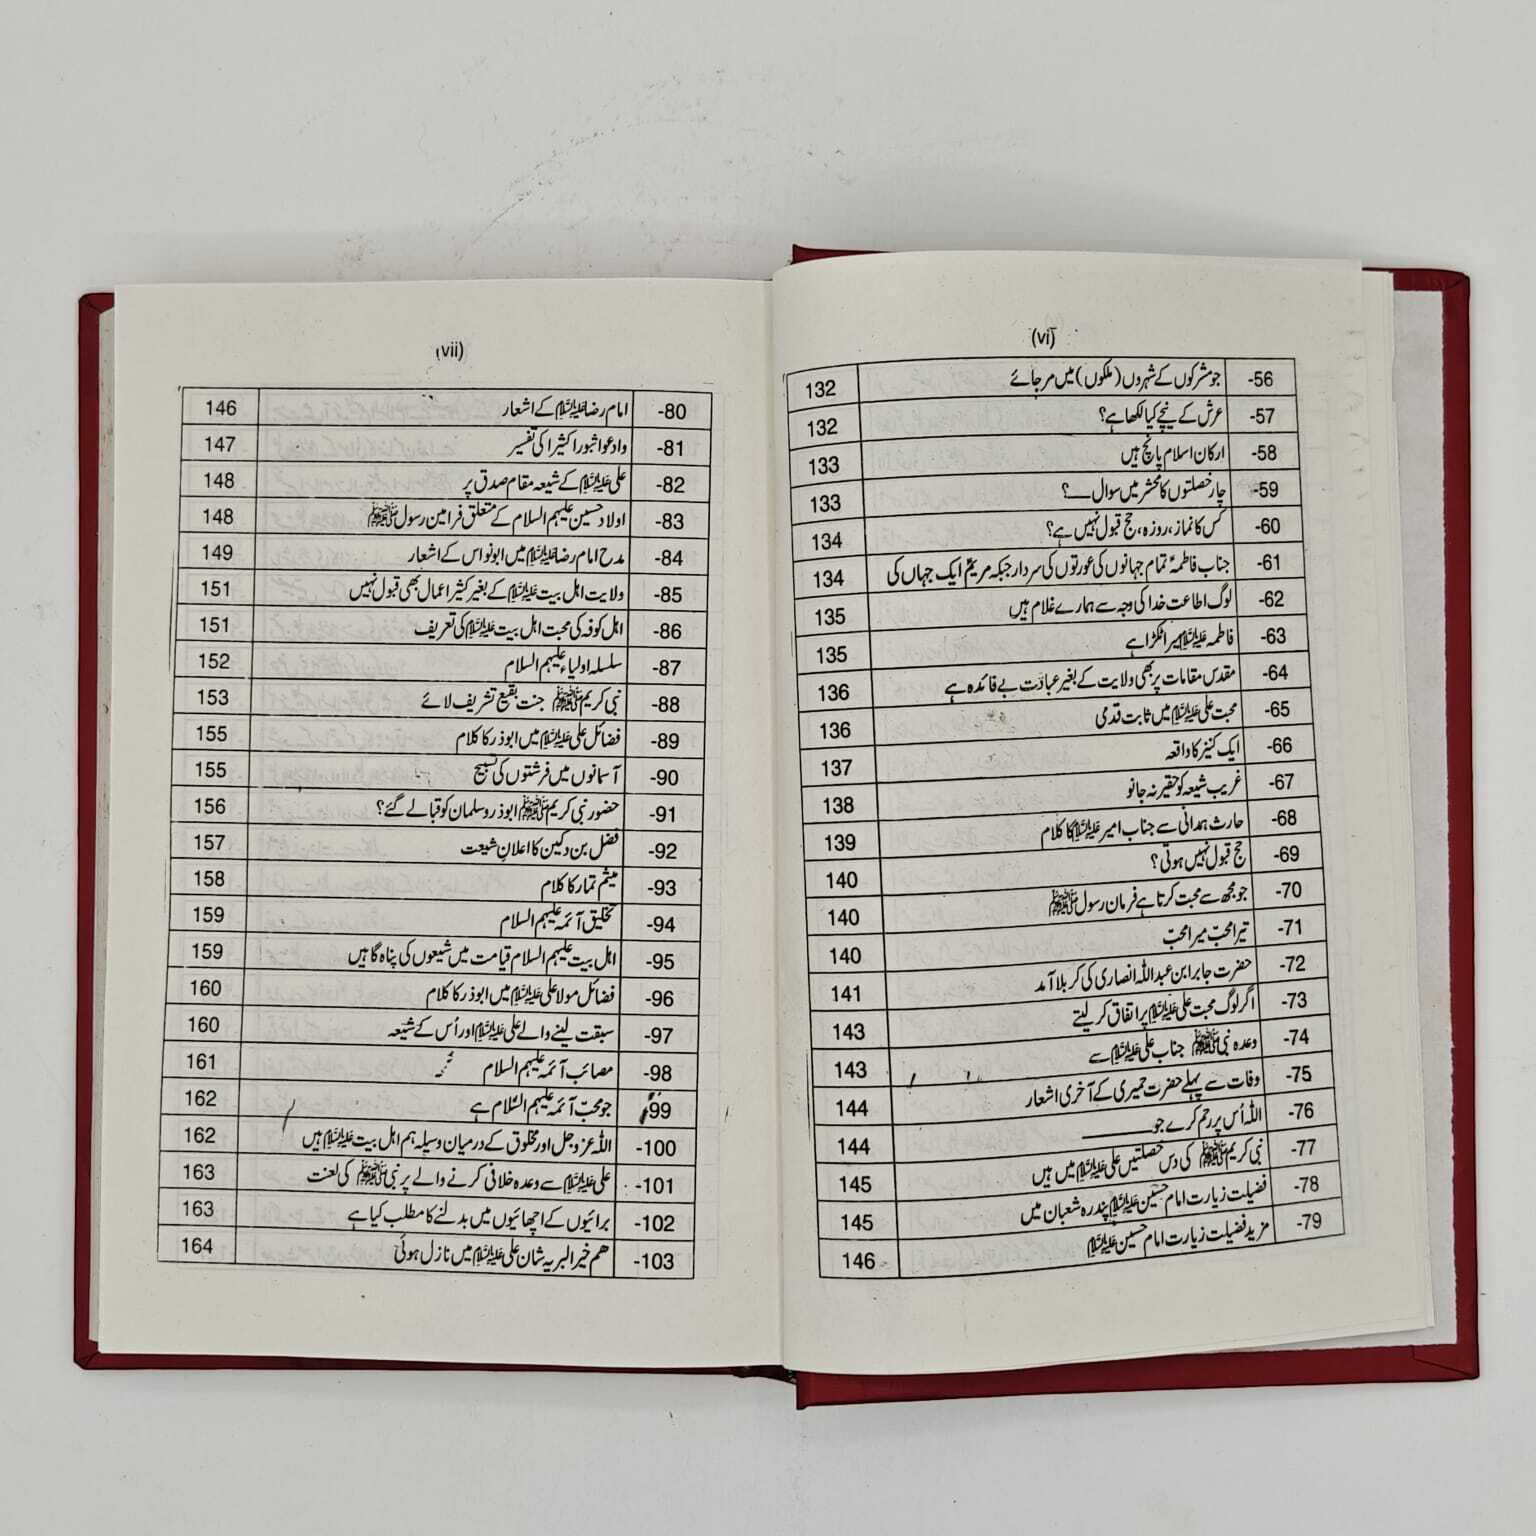 (vi)
-56 جو مشرکوں کے شہروں (ملکوں) میں مر جائے 132
-57 عرش کے نیچے کیا لکھا ہے؟ 132
-58 ارکان اسلام پانچ ہیں 133
-59 چار خصلتوں کا محشر میں سوال ــــ؟ 133
-60 کس کا نماز، روزہ، حج قبول نہیں ہے؟ 134
-61 جناب فاطمہؑ تمام جہانوں کی عورتوں کی سردار جبکہ مریمؑ ایک جہاں کی 134
-62 لوگ اطاعت خدا کی وجہ سے ہمارے غلام ہیں 135
-63 فاطمہ علیہا السلام میرا ٹکڑا ہے 135
-64 مقدس مقامات پر بھی ولایت کے بغیر عبادت بے فائدہ ہے 136
-65 محبت علی علیہ السلام میں ثابت قدمی 136
-66 ایک کنیز کا واقعہ 137
-67 غریب شیعہ کو حقیر نہ جانو 138
-68 حارث ہمدانی سے جناب امیر علیہ السلام کا کلام 139
-69 حج قبول نہیں ہوتی؟ 140
-70 جو مجھ سے محبت کرتا ہے فرمان رسول ﷺ 140
-71 تیرا محبّ میرا محبّ 140
-72 حضرت جابر ابن عبداللہ انصاری کی کربلا آمد 141
-73 اگر لوگ محبت علی علیہ السلام پر اتفاق کر لیتے 143
-74 وعدہ نبی ﷺ جناب علی علیہ السلام سے 143
-75 وفات سے پہلے حضرت حمیری کے آخری اشعار 144
-76 اللہ اُس پر رحم کرے جو ــــــــ 144
-77 نبی کریم ﷺ کی دس خصلتیں علی علیہ السلام میں ہیں 145
-78 فضیلت زیارت امام حسین علیہ السلام پندرہ شعبان میں 145
-79 مزید فضیلت زیارت امام حسین علیہ السلام 146
(vii)
-80 امام رضا علیہ السلام کے اشعار 146
-81 وادعوا ثبورا کثیرا کی تفسیر 147
-82 علی علیہ السلام کے شیعہ مقام صدق پر 148
-83 اولاد حسین علیہم السلام کے متعلق فرامین رسول ﷺ 148
-84 مدح امام رضا علیہ السلام میں ابو نواس کے اشعار 149
-85 ولایت اہل بیت علیہ السلام کے بغیر کثیر اعمال بھی قبول نہیں 151
-86 اہل کوفہ کی محبت اہل بیت علیہ السلام کی تعریف 151
-87 سلسلہ اولیاء علیہم السلام 152
-88 نبی کریم ﷺ جنت بقیع تشریف لائے 153
-89 فضائل علی علیہ السلام میں ابوذر کا کلام 155
-90 آسمانوں میں فرشتوں کی تسبیح 155
-91 حضور نبی کریم ﷺ ابوذر و سلمان کو قبا لے گئے؟ 156
-92 فضل بن دکین کا اعلانِ شیعت 157
-93 میثم تمار کا کلام 158
-94 تخلیق آئمہ علیہم السلام 159
-95 اہل بیت علیہم السلام قیامت میں شیعوں کی پناہ گا ہیں 159
-96 فضائل مولا علی علیہ السلام میں ابوذر کا کلام 160
-97 سبقت لینے والے علی علیہ السلام اور اُس کے شیعہ 160
-98 مصائب آئمہ علیہم السلام 161
99 جو محبّ آئمہ علیہم السّلام ہے 162
-100 اللہ عزوجل اور مخلوق کے درمیان وسیلہ ہم اہل بیت علیہ السلام ہیں 162
-101 علی علیہ السلام سے وعدہ خلافی کرنے والے پر نبی ﷺ کی لعنت 163
-102 برائیوں کے اچھائیوں میں بدلنے کا مطلب کیا ہے 163
-103 ھم خیر البریہ شان علی علیہ السلام میں نازل ہوئی 164